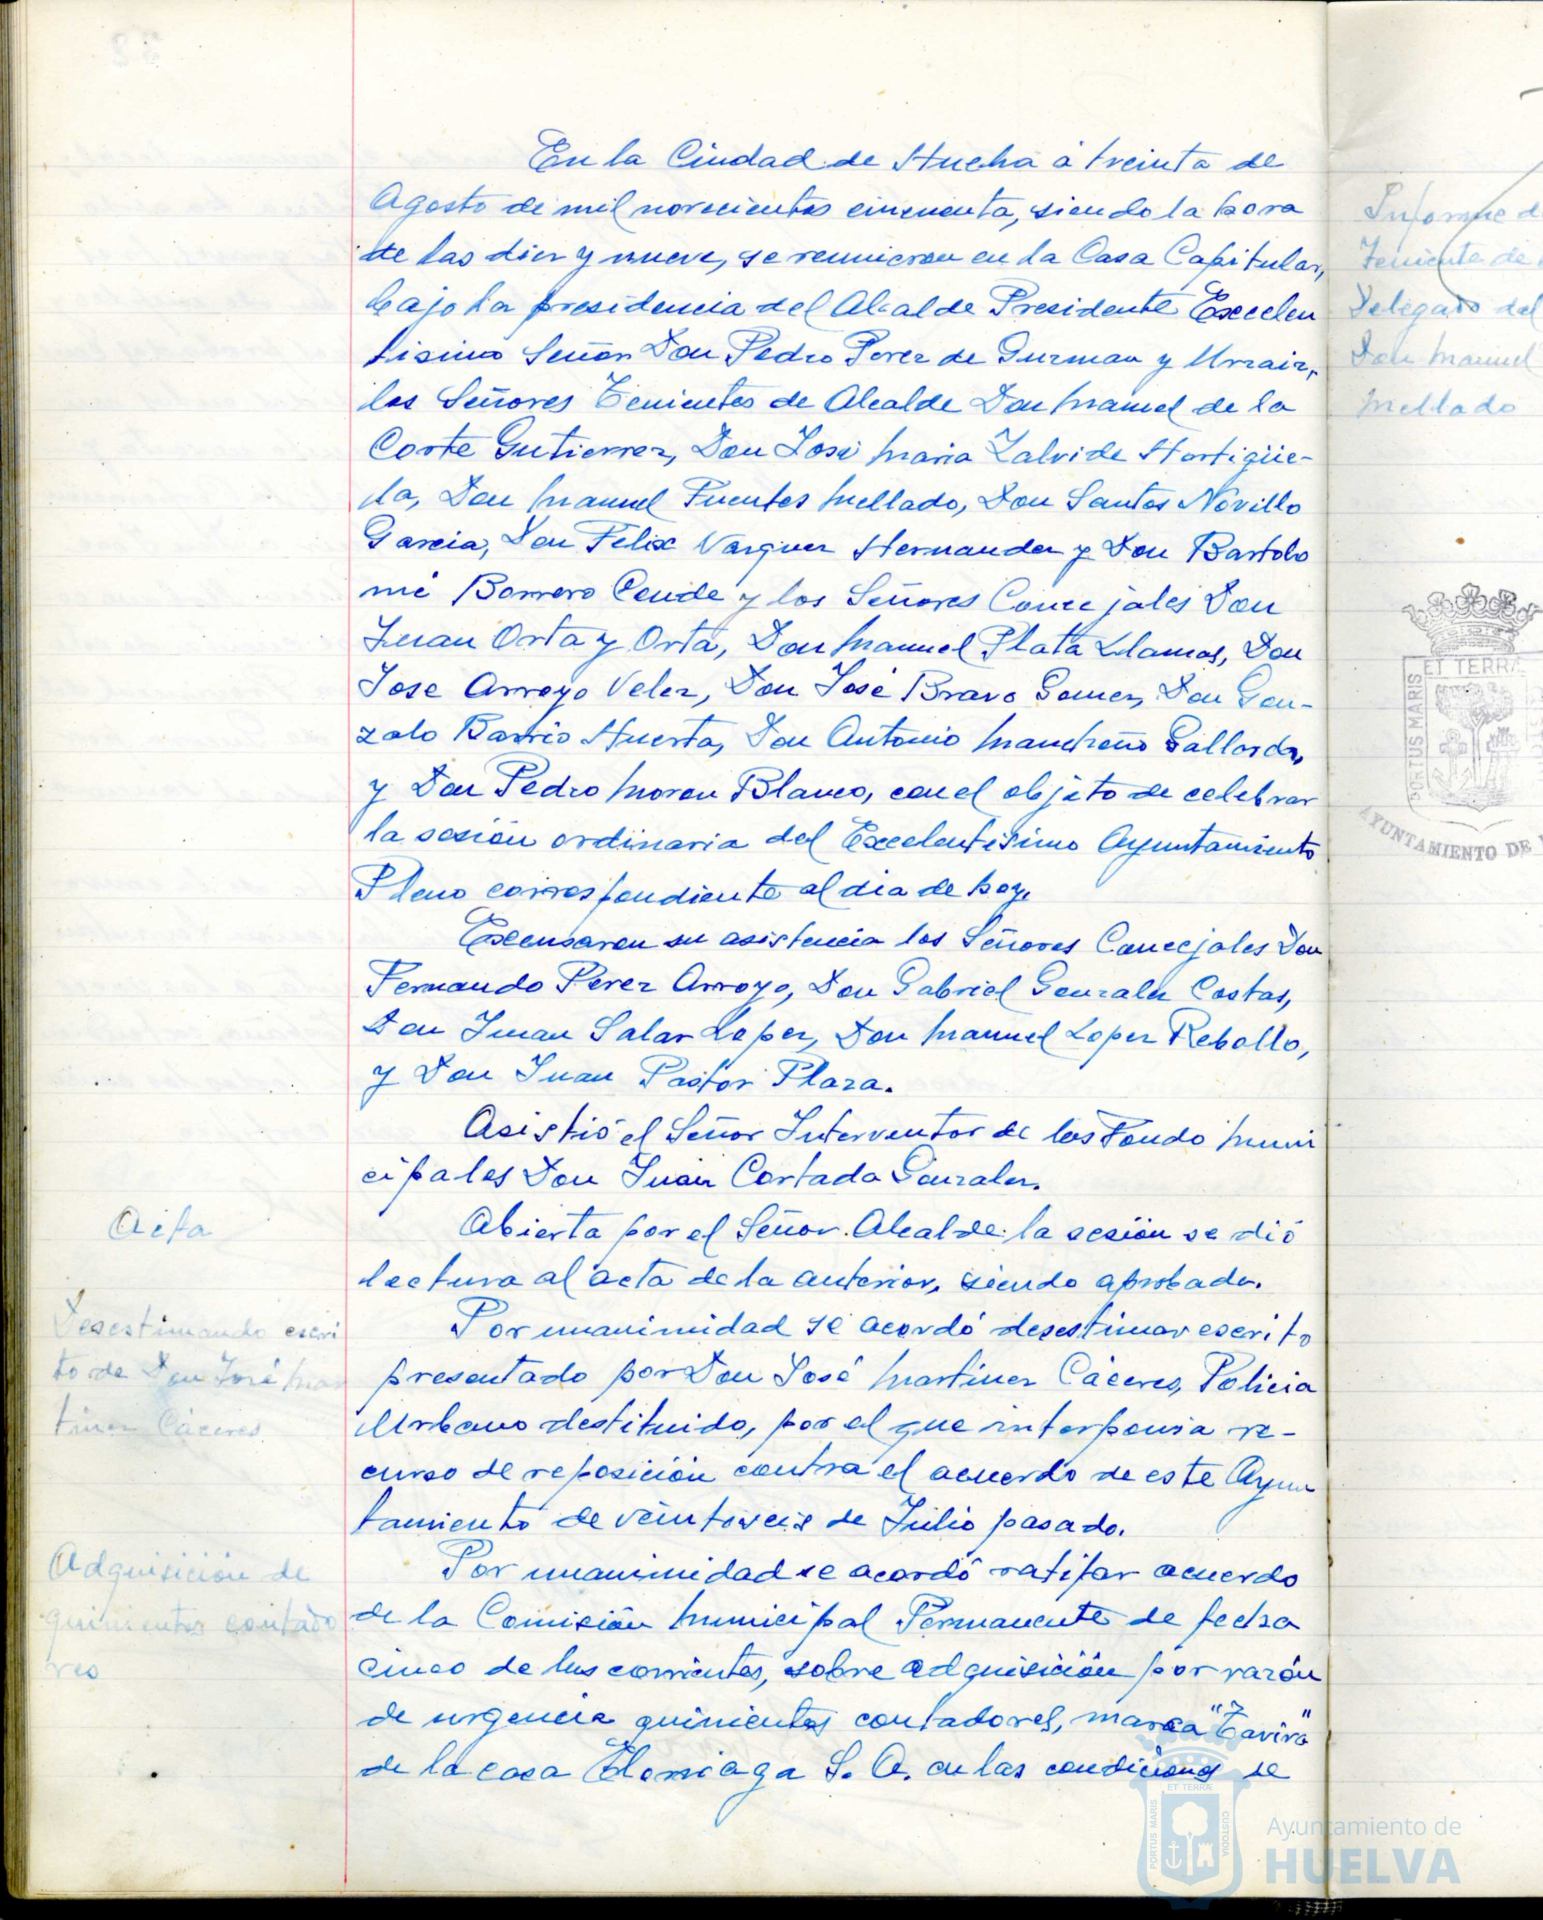 En la Ciudad de Huelva á treinta de
Agosto de mil novecientos cincuenta, siendo la hora
de las diez y nueve, se reunieron en la Casa Capitular,
bajo la presidencia del Alcalde Presidente Excelen
tisimo Señor Don Pedro Perez de Guzman y Urzaiz,
los Señores Tenientes de Alcalde Don Manuel de la
Corte Gutierrez, Don José Maria Zalvide Hortigüe-
la, Don Manuel Fuentes Mellado, Don Santos Novillo
Garcia, Don Felix Vazquez Hernandez y Don Bartolo
mé Borrero Conde y los Señores Concejales Don
Juan Orta y Orta, Don Manuel Plata Llamas, Don
Jose Arroyo Velez, Don José Bravo Gomez, Don Gon-
zalo Barrio Huerta, Don Antonio Mancheño Gallardo,
y Don Pedro Moron Blanco, con el objeto de celebrar
la sesión ordinaria del Excelentisimo Ayuntamiento
Pleno correspondiente al dia de hoy.
Excusaron su asistencia los Señores Concejales Don
Fernando Perez Arroyo, Don Gabriel Gonzalez Costas,
Don Juan Salar Lopez, Don Manuel Lopez Rebollo,
y Don Juan Pastor Plaza.
Asistió el Señor Interventor de los Fondo Muni
cipales Don Juan Cortada Gonzalez.
Acta
Abierta por el Señor Alcalde la sesión se dió
lectura al acta de la anterior, siendo aprobada.
Desestimando escri
to de Don José Mar
tinez Cáceres
Por unanimidad se acordó desestimar escrito
presentado por Don José Martinez Cáceres, Policia
Urbano destituido, por el que interponia re-
curso de reposición contra el acuerdo de este Ayun
tamiento de veintiseis de Julio pasado.
Adquisición de
quinientos contado
res
Por unanimidad se acordó ratifar acuerdo
de la Comisión Municipal Permanente de fecha
cinco de los corrientes, sobre adquisición por razón
de urgencia quinientos contadores, marca "Tavira"
de la casa S. A. en las condiciones se
Informe d
Teniente de
Delegado del
Don Manuel
Mellado
PORTUS MARIS
ET TERRÆ
AYUNTAMIENTO DE
PORTUS MARIS
ET TERRÆ
CUSTODIA
Ayuntamiento de
HUELVA